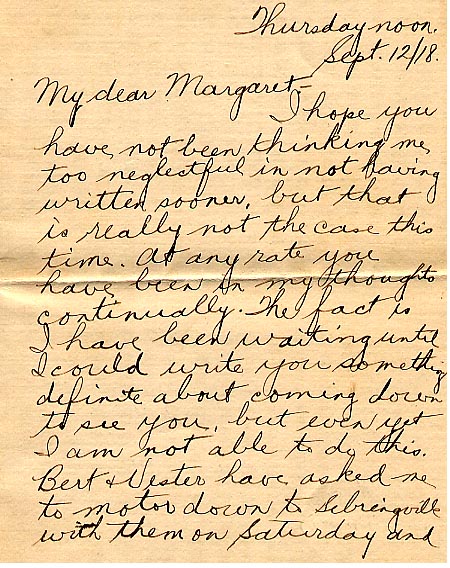 Thursday noon.
Sept. 12/18.
My dear Margaret—
I hope you
have not been thinking me
too neglestful in not having
written sooner, but that
is really not the case this
time. At any rate you
have been in my thoughts
continually. The fact is
I have been waiting until
I could write you something
definite about coming down
to see you, but even yet
I am not able to do this.
Bert & Vester have asked me
to motor down to Sebringville
with them on Saturday and